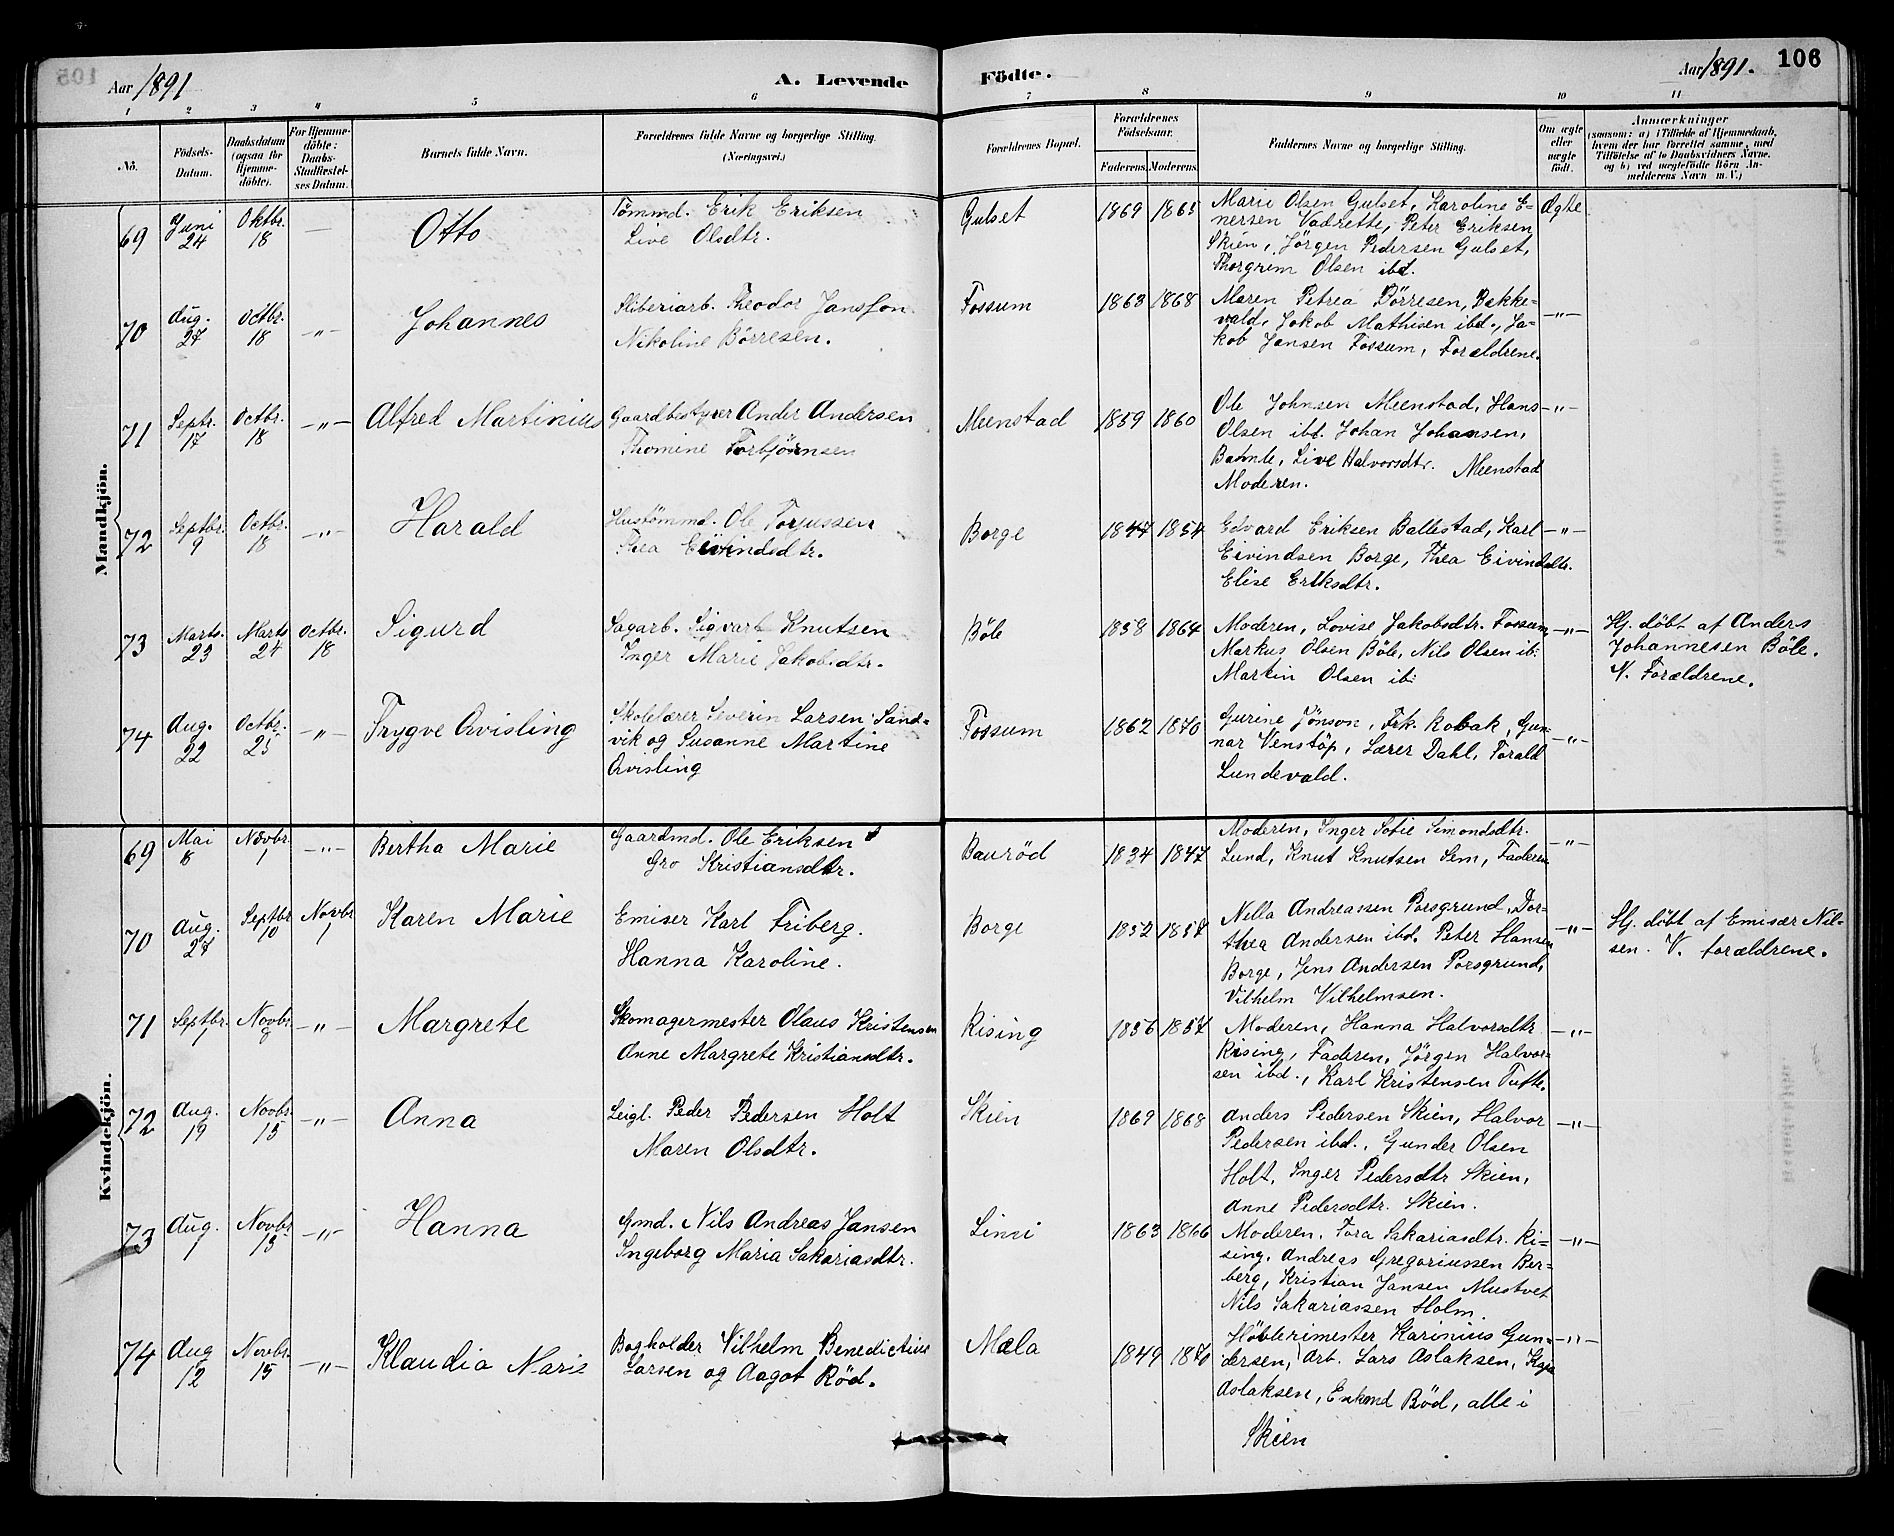 105
Aar 1891
A. Levende
Födte.
Aar 1891.
106
1 2 3 4 5 6 7 8 9 10 11
No.
Födsels-
Datum.
Daabsdatum
(ogsaa for
Hjemme-
döbte).
For Hjemme-
döbte:
Daabs-
Stadfæstel-
ses Datum.
Barnets fulde Navn.
Forældrenes fulde Navne og borgerlige Stilling.
(Næringsvei.)
Forældrenes Bopæl.
Forældrenes
Födselsaar.
Faderens. Moderens.
Faddernes Navne og borgerlige Stilling.
Om ægte
eller
uægte
født.
Anmærkninger
(saasom: a) i Tilfælde af Hjemmedaab,
hvem der har forrettet samme, med
Tilföielse af to Daabsvidners Navne.
og b) ved uægtefödte Börn An-
melderens Navn m.V.)
Mandkjön.
69 Juni 24 Oktbr. 18 — Otto
Tömmd. Erik Eriksen
Live Olsdtr.
Gulset 1869 1865
Marie Olsen Gulset, Karoline E-
nersen Vadrette, Peter Eriksen
Skien, Jörgen Pedersen Gulset,
Thorgrem Olsen ibd.
Ægte
70 Aug. 27 Octbr. 18 -"- Johannes
Sliberiarb. Theodor Janssen
Nikoline Börresen.
Fossum 1863 1868
Maren Petrea Börresen, Bakke-
vald, Jokob Mathisen ibd., Ja-
kob Jansen Fossum, Forældrene.
-"-
71 Septr. 17 Octbr. 18 -"- Alfred Martinius
Gaardbestyrer Ander Andersen
Thomine Torbjörnsen
Meenstad 1859 1860
Ole Johnsen Meenstad, Hans
Olsen ibd. Johan Johansen,
Bamle, Live Halvorsdtr. Meenstad
Moderen.
-"-
72 Septbr. 9 Octbr. 18 -"- Harald
Hustömmd. Ole Toriussen
Thea Eivindsdtr.
Borge 1847 1854
Edvard Eriksen Ballestad, Karl
Eivindsen Borge, Thea Eivindsdtr.
Elise Eriksdtr.
-"-
73 Marts. 23 Marts 24 Octbr. 18 Sigurd
Sagarb. Sigvart Knutsen
Inger Marie Jakobsdtr.
Böle 1858 1864
Moderen, Lovise Jakobsdtr. Fossum,
Markus Olsen Böle, Nils Olsen ib:
Martin Olsen ib:
-"-
Hj. döbt af Anders
Johannesen Böle.
V. Forældrene.
74 Aug. 22 Octbr. 25 -"- Trygve Qvisling
Skolelærer Severin Larsen Sand-
vik og Susanne Martine
Qvisling
Fossum 1862 1870
Gurine Jönson, Frk. Kobak, Gun-
nar Venstöp, Lærer Dahl, Torald
Lundevald.
-"-
Kvindekjön.
69 Mai 8 Novbr. 1 -"- Bertha Marie
Gaardmd. Ole Eriksen
Gro Kristiansdtr.
Bauröd 1834 1847
Moderen, Inger Sofie Simondsdtr.
Lund, Knut Knutsen Sem, Faderen
-"-
70 Aug. 27 Septbr 10 Novbr 1 Karen Marie
Emisær Karl Friberg.
Hanna Karoline.
Borge 1852 1857
Nella Andreassen Porsgrund, Dor-
thea Andersen ibd. Peter Hansen
Borge, Jens Andersen Porsgrund,
Vilhelm Vilhelmsen.
-"-
Hj. döbt af Emisær Nil-
sen. V. forældrene.
71 Septbr. 1 Novbr. 8 -"- Margrete
Skomagermester Olaus Kristensen
Anne Margrete Kristiansdtr.
Rising 1856 1857
Moderen, Hanna Halvorsdtr
Rising, Faderen, Jörgen Halvor-
sen ibd., Karl Kristensen Tufte.
-"-
72 Aug. 19 Novbr. 15 -"- Anna
Leigl. Peder Pedersen Holt
Maren Olsdtr.
Skien 1869 1868
Anders Pedersen Skien, Halvor
Pedersen ibd., Gunder Olsen
Holt, Inger Pedersdtr Skien,
Anne Pedersdtr. Skien.
-"-
73 Aug. 1 Novbr. 15 -"- Hanna
Gmd. Nils Andreas Jansen
Ingeborg Maria Sakariasdtr.
Limi 1863 1866
Moderen, Tora Sakariasdtr. Ri-
sing, Andreas Gregoriussen Ber-
berg, Kristian Jansen Mustvet
Nils Sakariassen Holm.
-"-
74 Aug 12 Novbr. 15 -"- Klaudia Marie
Bogholder Vilhelm Benedictius
Larsen og Aagot Röd.
Mæla 1849 1870
Høvlerimester Karinius Gun-
dersen, Arb. Lars Aslaksen, Kaja
Aslaksen, Enkemd Röd, alle i
Skien
-"-